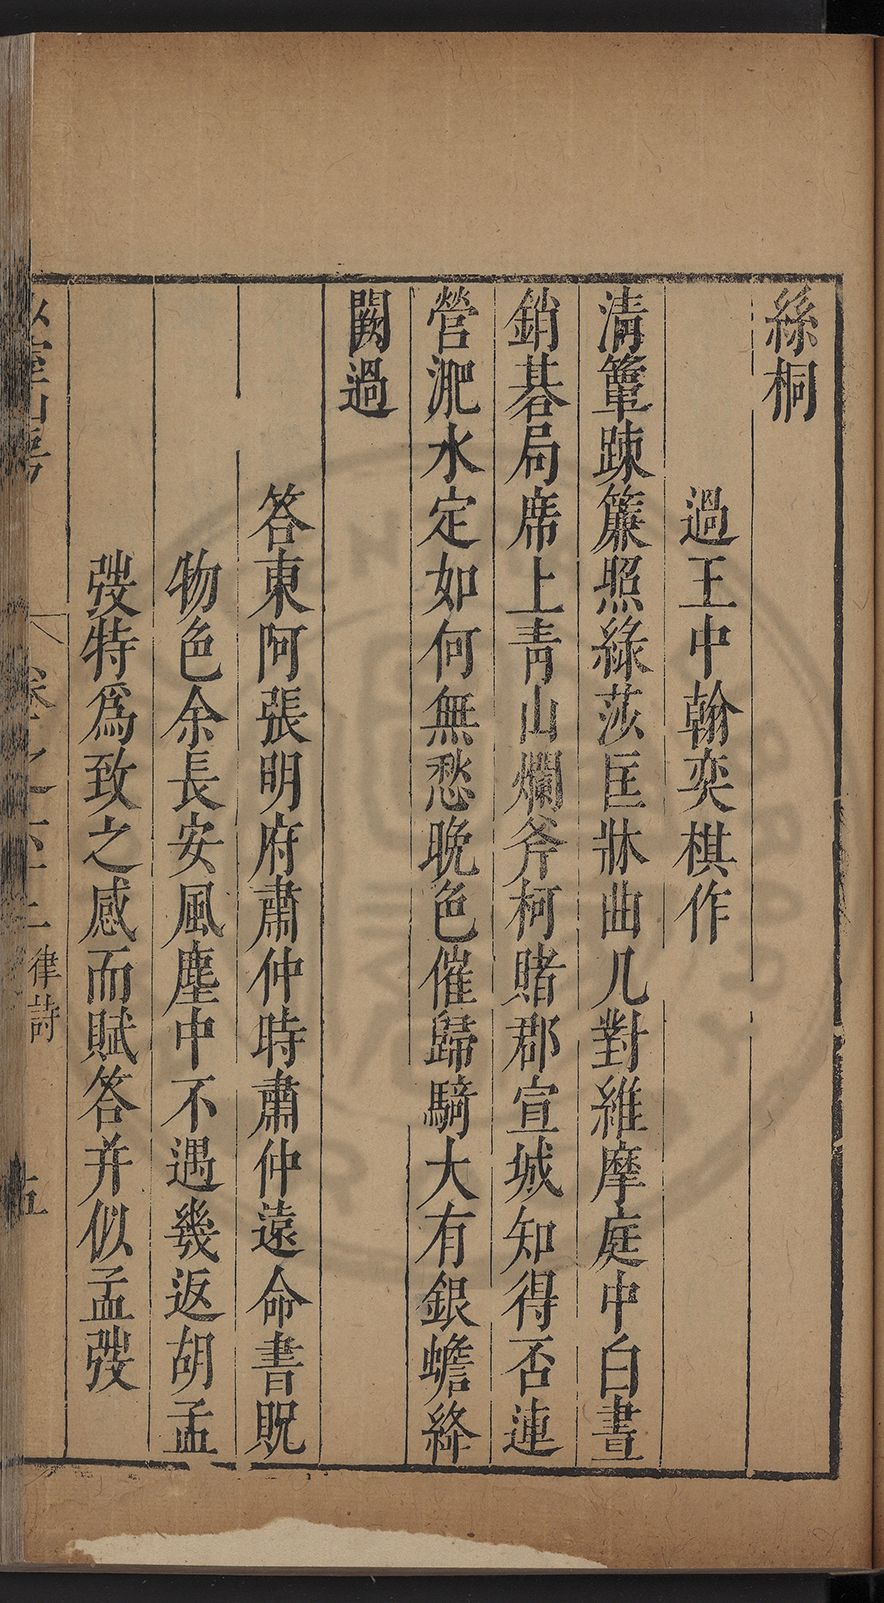 絲桐
過王中翰奕棋作
淸簟踈簾照綠莎匡牀曲几對維摩庭中白晝
銷棊局席上靑山爛斧柯賭郡宣城知得否連
營淝水定如何無愁晚色催歸騎大有銀蟾絳
闕過
答東阿張明府肅仲時肅仲遠命書貺
物色余長安風塵中不遇幾返胡孟
弢特爲致之感而賦答并似孟弢
律詩
五